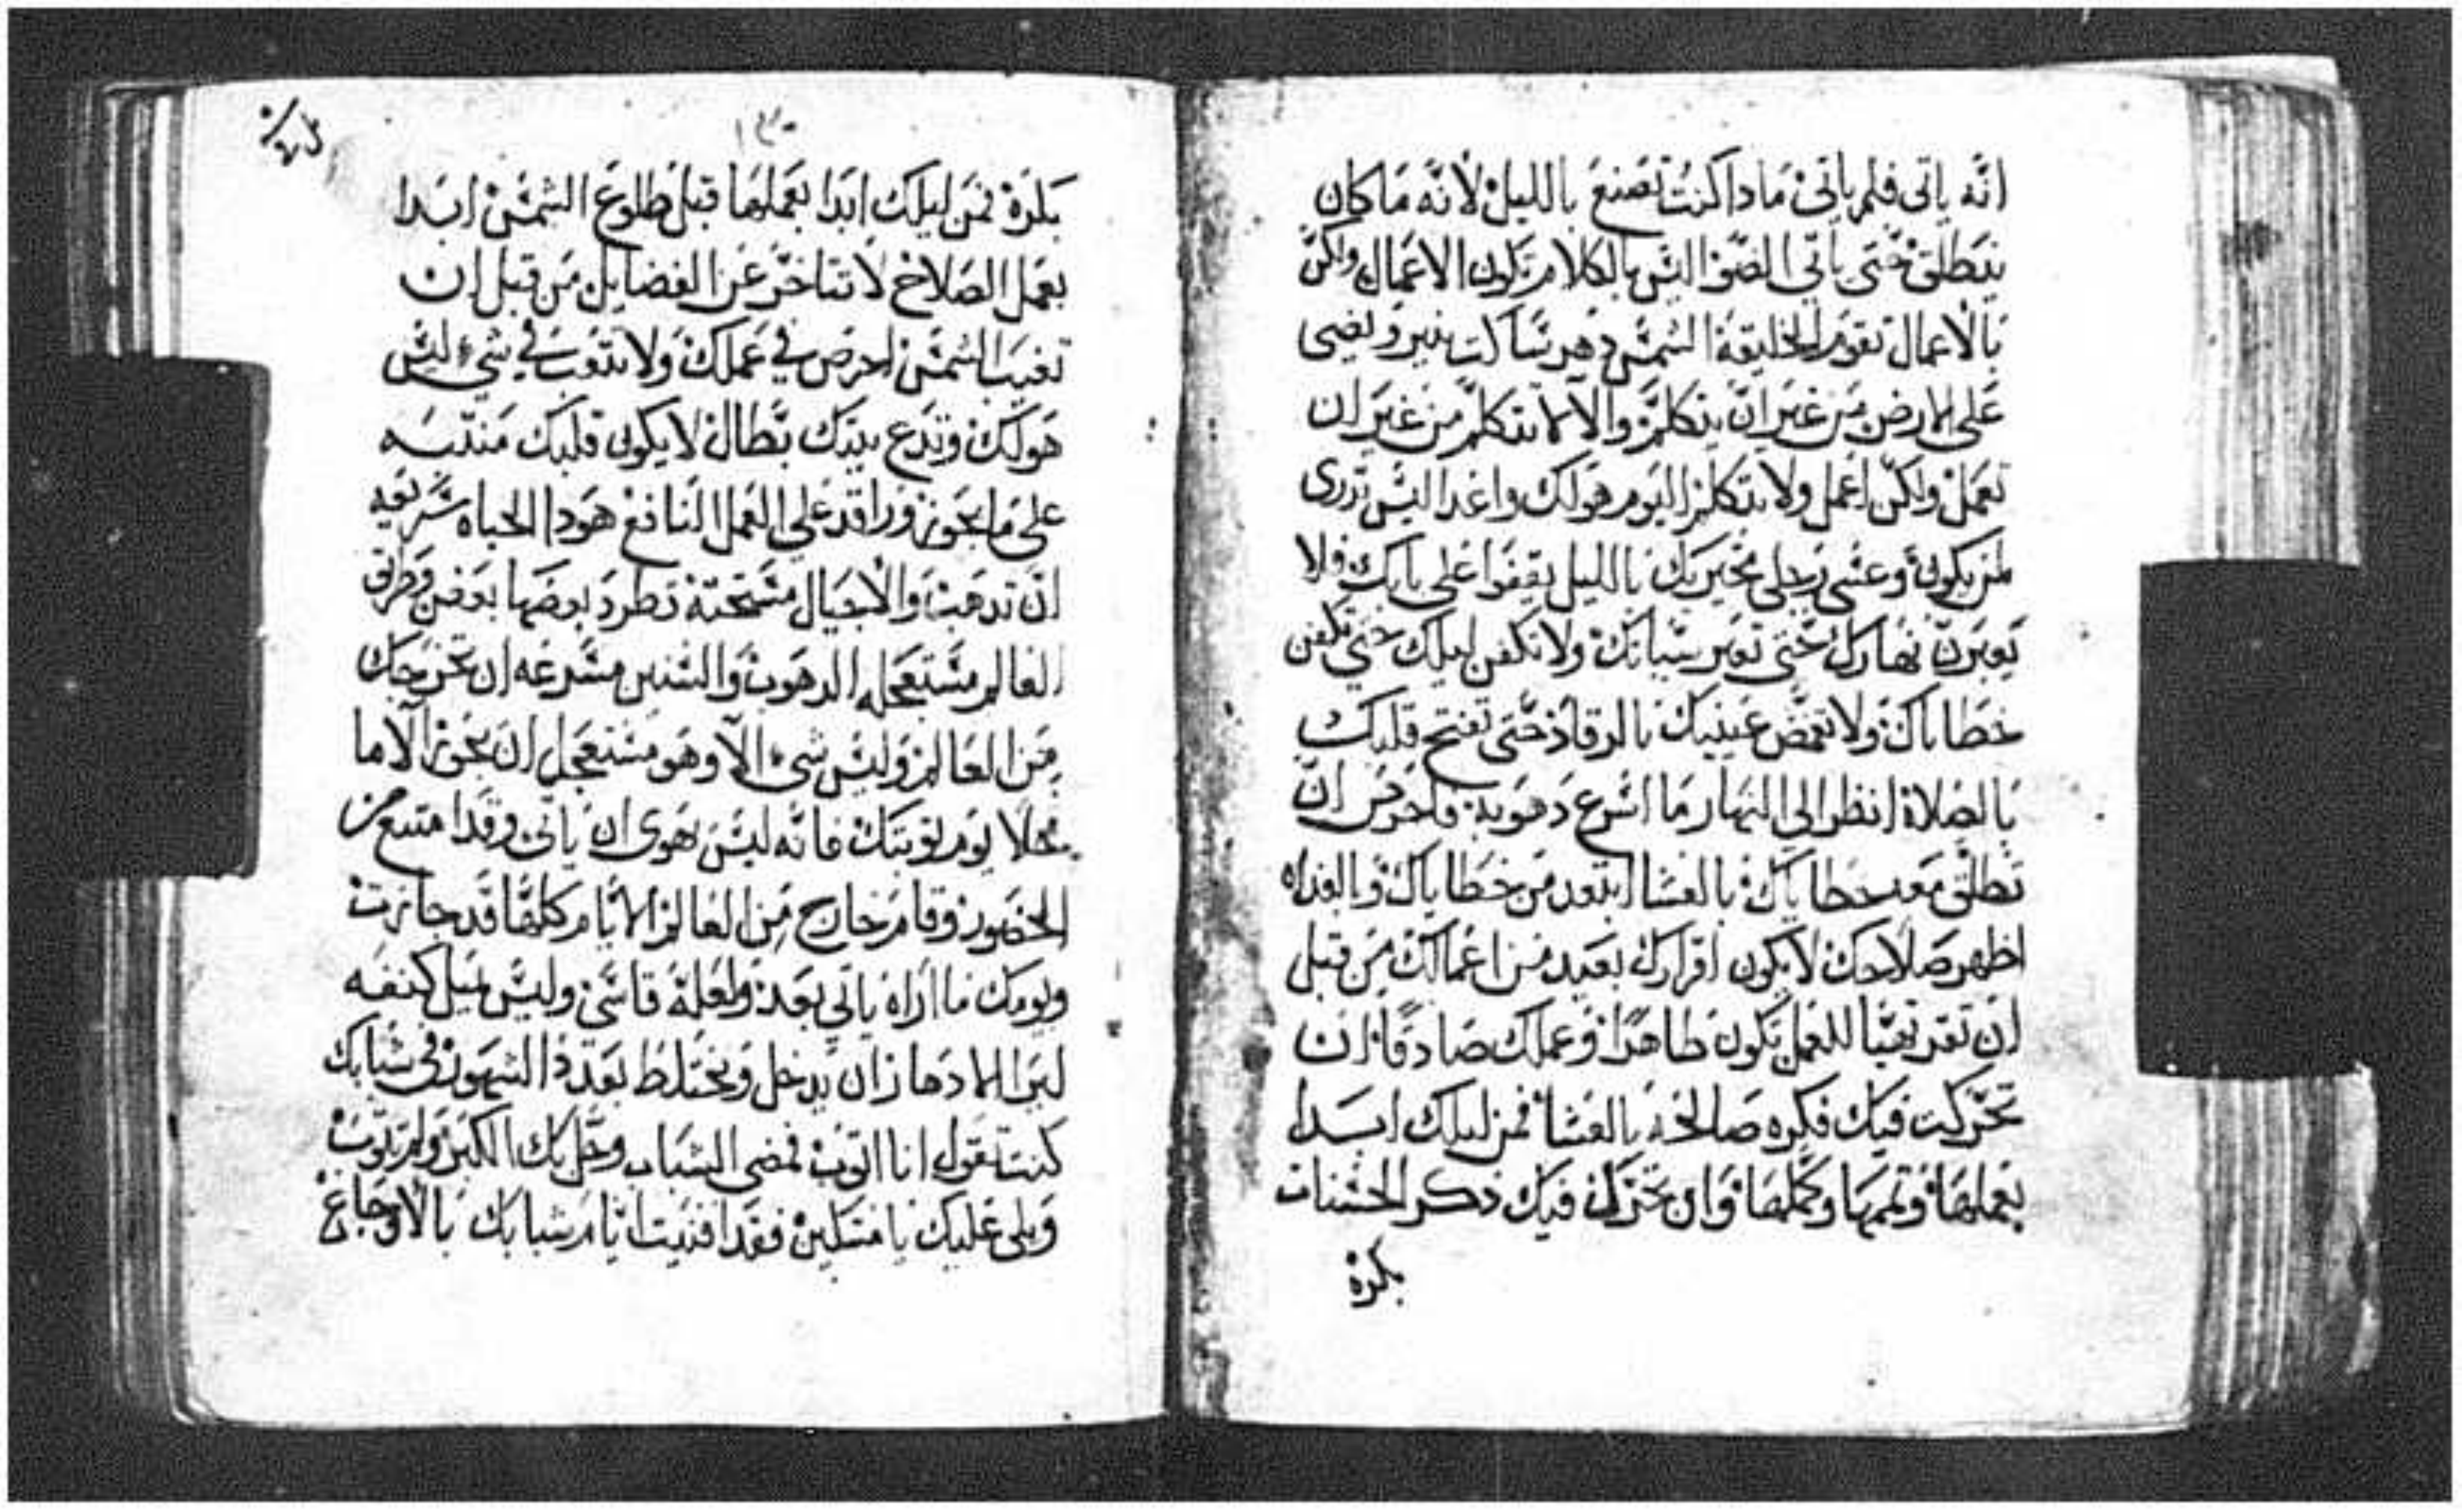 انه ياتي فلم ياتي ماذا كنت تصنع بالليل لانه ما كان
ينطلق حتى ياتي الضو اليس بالكلام تكون الاعمال ولكن
بالاعمال تقوم الخليقة الشمس هو ساكت ينير ويضي
على الارض من غير ان يتكلم والا لا تتكلم من غير ان
تعمل ولكن اعمل ولا تتكلم اليوم هو لك واغدا ليس تدري
لمن يكون وعشي رجلي مخيريك بالليل يقفوا على بابك ولا
تعبرن نهارك حتى تعبر سياتك ولا تكفن ليلك حتى تكفن
خطاياك ولا تغمض عينيك بالرقاد حتى تفتح قلبك
بالصلاة انظر الى النهار ما اسرع دهوبه واحرص ان
تطلق معه خطاياك بالعشا ابتعد من خطاياك وبالغداه
اظهر صلاحك لا يكون اقرارك بعيد من اعمالك من قبل
ان تقر تهيا للعمل تكون طاهرا وعملك صادقا ان
تحركت فيك فكره صالحه بالعشا فمن ليلك ابدا
بعملها وتممها وكملها وان تحرك فيك ذكر الحسنات
بكرة
١٣٠
بكرة فمن ليلك ابدا بعملها قبل طلوع الشمس ابدا
بعمل الصلاح لا تتاخر عن الفضايل من قبل ان
تغيب الشمس احرص في عملك ولا تتعب في شيء ليس
هو لك وتدع بيتك بطال لا يكون قلبك منتبه
على ما يجوز وراقد على العمل النافع هودا الحياه سريعه
ان تدهب والاجيال مستحته تطرد بعضها بعض وطرق
العالم مستعجله الدهوب والسنين مسرعه ان تخرجك
من العالم وليس شيء الا وهو مستعجل ان يجوز الا ما
خلا يوم توبتك فانه ليس يهوى ان ياتي وقد امتنع من
الحضور وقام خارج من العالم الايام كلها قد جازت
ويومك ما اراه ياتي بعد ولعله قاسي وليس يميل كنفه
لير الادهار ان يدخل ويختلط بعدد الشهور في شبابك
كنت تقول انا اتوب فمضى الشباب وحل بك الكبر ولم تتوب
ويلي عليك يا مسكين فقد افنيت ايام شبابك بالاوجاع